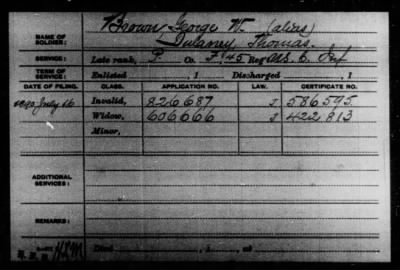 NAME OF SOLDIER: Brown George W. (alias)
Dulaney, Thomas.
SERVICE: Late rank, P. Co. F, 45 Reg. U.S. C. Inf
TERM OF SERVICE: Enlisted , 1 Discharged , 1
DATE OF FILING. CLASS. APPLICATION NO. LAW. CERTIFICATE NO.
1890 July 16 Invalid, 826687 J 586595.
Widow, 606666 J 422,813
Minor,
ADDITIONAL SERVICES:
REMARKS:
Died , 1 , at